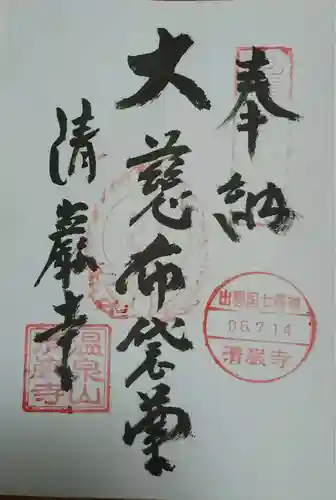 奉納
大慈布袋尊
清巖寺
出雲国七福神
06.7.14
清巌寺
温泉山
清巖寺